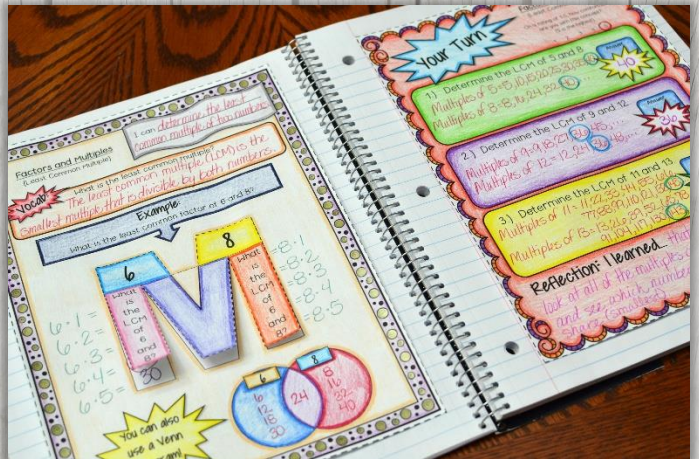 I can determine the least
common multiple of two numbers.
Factors and Multiples
(Least Common Multiple)
Vocab
What is the least common multiple?
The least common multiple (LCM) is the
smallest multiple that is divisible by both numbers.
Example:
What is the least common factor of 6 and 8?
6
8
What
is
the
LCM
of
6
and
8?
30
What
is
the
LCM
of
6
and
8?
6·1=
6·2=
6·3=
6·4=
6·5=
=8·1
=8·2
=8·3
=8·4
=8·5
6
8
6
12
18
30
24
8
16
32
40
You can also
use a Venn
Your Turn
1.) Determine the LCM of 5 and 8
Multiples of 5=5,10,15,20,25,30,35,40
Multiples of 8=8,16,24,32,40
Answer
40
2.) Determine the LCM of 9 and 12
Multiples of 9=9,18,27,36,45,...
Multiples of 12=12,24,36,48,...
Answer
36
3.) Determine the LCM of 11 and 13
Multiples of 11=11,22,33,44,55,66
77,88,99,110
Multiples of 13=13,26,39,52
91,104,117,130
Reflection: I learned...
look at all of the multiples
and see which number